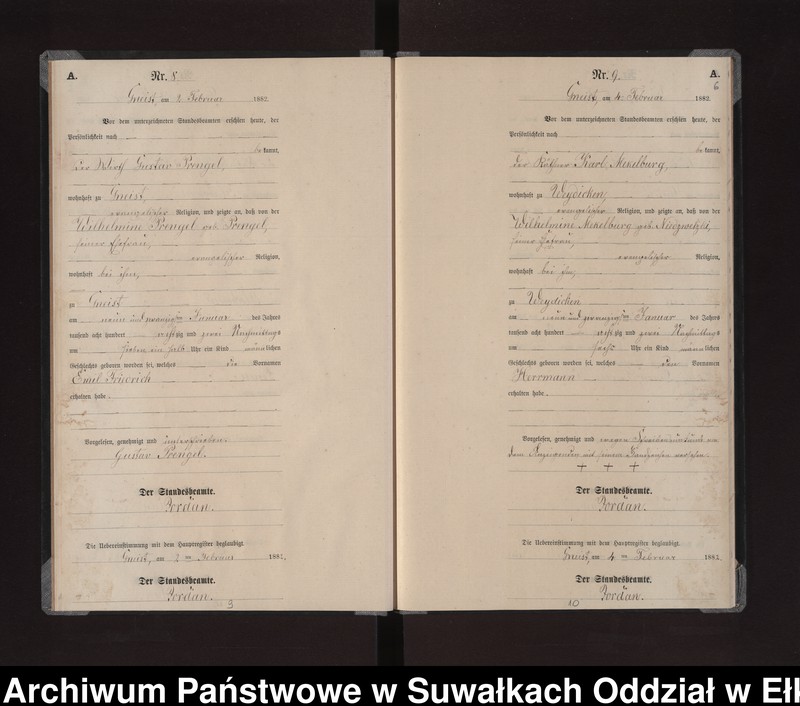 A.
Nr. 8.
Gneist, am 2. Februar 1882.
Vor dem unterzeichneten Standesbeamten erschien heute, der
Persönlichkeit nach
bekannt,
der Wirth Gustav Prengel,
wohnhaft zu Gneist,
evangelischer Religion, und zeigte an, daß von der
Wilhelmine Prengel geb. Prengel,
seiner Ehefrau,
evangelischer Religion,
wohnhaft bei ihm,
zu Gneist
am neun und zwanzigsten Januar des Jahrs
tausend acht hundert achtzig und zwei Nachmittags
um sieben ein halb Uhr ein Kind männlichen
Geschlechts geboren worden sei, welches die Vornamen
Emil Friedrich
erhalten habe.
Vorgelesen, genehmigt und unterschrieben.
Gustav Prengel.
Der Standesbeamte.
Jordan.
Die Uebereinstimmung mit dem Hauptregister beglaubigt.
Gneist, am 2ten Februar 1882.
Der Standesbeamte.
Jordan.
Nr. 9.
A.
6
Gneist, am 4. Februar 1882.
Vor dem unterzeichneten Standesbeamten erschien heute, der
Persönlichkeit nach
bekannt,
der Käthner Karl Mekelburg,
wohnhaft zu Weydicken,
evangelischer Religion, und zeigte an, daß von der
Wilhelmine Mekelburg geb.
seiner Ehefrau,
evangelischer Religion,
wohnhaft bei ihm,
zu Weydicken
am neun und zwanzigsten Januar des Jahrs
tausend acht hundert achtzig und zwei Nachmittags
um sechs Uhr ein Kind männlichen
Geschlechts geboren worden sei, welches den Vornamen
Herrmann
erhalten habe.
Vorgelesen, genehmigt und wegen Schreibensunkunde von
dem Anzeigenden mit seinem Handzeichen versehen.
+ + +
Der Standesbeamte.
Jordan.
Die Uebereinstimmung mit dem Hauptregister beglaubigt.
Gneist, am 4ten Februar 1882.
Der Standesbeamte.
Jordan.
10
Archiwum Państwowe w Suwałkach Oddział w Ełk